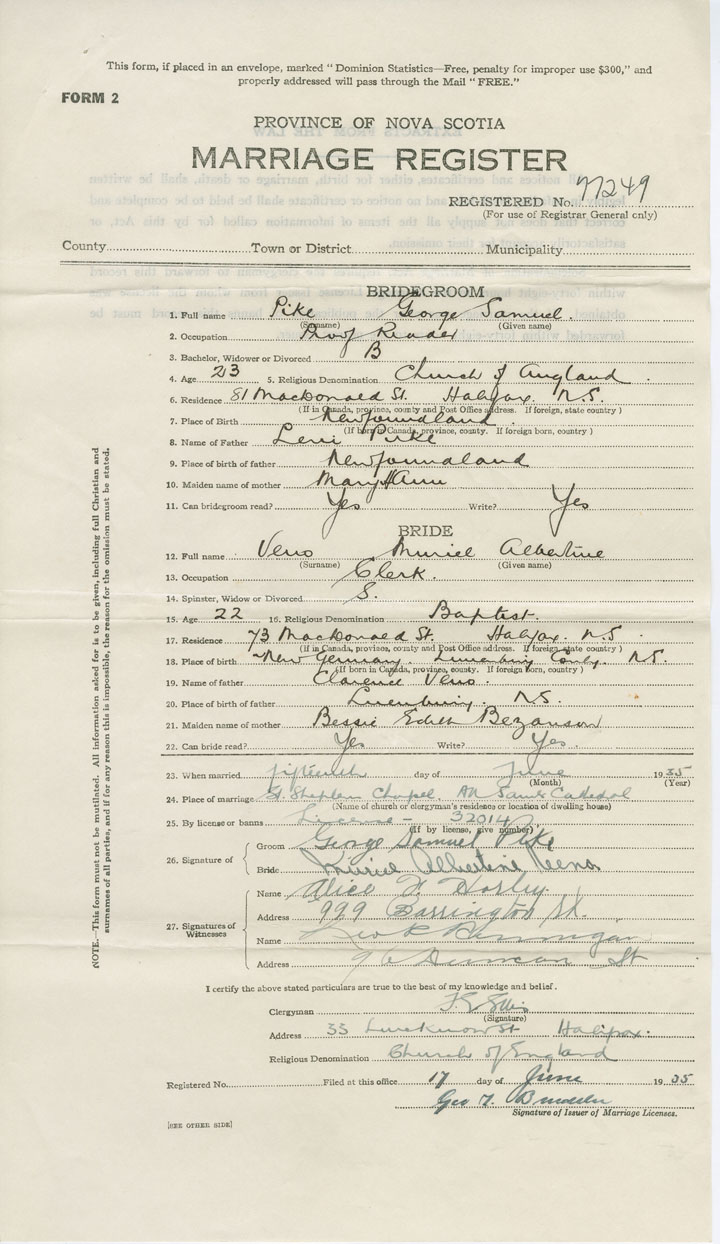 This form, if placed in an envelope, marked " Dominion Statistics—Free, penalty for improper use $300," and
properly addressed will pass through the Mail " FREE."
FORM 2
PROVINCE OF NOVA SCOTIA
MARRIAGE REGISTER
REGISTERED No. 77249
(For use of Registrar General only)
County Town or District Municipality
BRIDEGROOM
1. Full name Pike George Samuel.
(Surname) (Given name)
2. Occupation Proof Reader
3. Bachelor, Widower or Divorced B
4. Age 23 5. Religious Denomination Church of England
6. Residence 81 MacDonald St. Halifax. N.S.
(If in Canada, province, county and Post Office address. If foreign, state country )
7. Place of Birth Newfoundland
(If born in Canada, province, county. If foreign born, country )
8. Name of Father Levi Pike
9. Place of birth of father Newfoundland
10. Maiden name of mother Mary Ann
11. Can bridegroom read? Yes Write? Yes
BRIDE
12. Full name Veno Muriel Albertine
(Surname) (Given name)
13. Occupation Clerk.
14. Spinster, Widow or Divorced S.
15. Age 22 16. Religious Denomination Baptist.
17. Residence 73 MacDonald St. Halifax. N.S
(If in Canada, province, county and Post Office address. If foreign, state country )
18. Place of birth New Germany. Lunenburg County. N.S.
(If born in Canada, province, county. If foreign born, country )
19. Name of father Clarence Veno
20. Place of birth of father Lunenburg. N.S.
21. Maiden name of mother Bessie Edith Bezanson
22. Can bride read? Yes Write? Yes.
23. When married fifteenth day of June 1935
(Month) (Year)
24. Place of marriage St. Stephen Chapel, All Saints Cathedral
(Name of church or clergyman's residence or location of dwelling house)
25. By license or banns License - 32014
(If by license, give number)
26. Signature of
Groom George Samuel Pike
Bride Muriel Albertine Veno
27. Signatures of Witnesses
Name Alice
Address 999 Barrington St.
Name
Address 96 Duncan St
I certify the above stated particulars are true to the best of my knowledge and belief.
Clergyman Ellis
(Signature)
Address 33 Lucknow St Halifax.
Religious Denomination Church of England
Registered No. Filed at this office 17 day of June 1935
Geo
Signature of Issuer of Marriage Licenses.
[SEE OTHER SIDE]
NOTE.—This form must not be mutilated. All information asked for is to be given, including full Christian and
surnames of all parties, and if for any reason this is impossible, the reason for the omission must be stated.